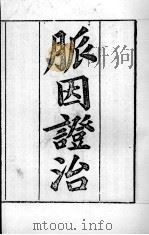 脈因證治
mtoou.info